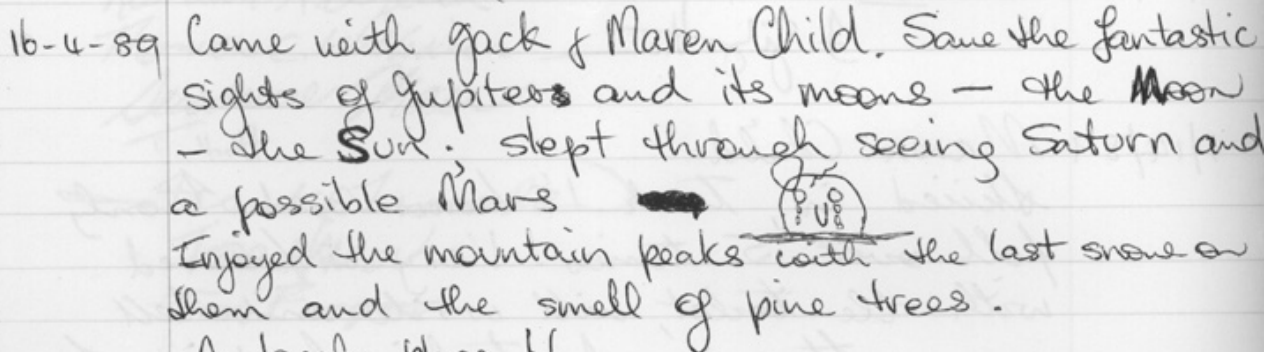 16-4-89 Came with Jack & Maren Child. Saw the fantastic
sights of Jupiter and its moons – the Moon
– the Sun; slept through seeing Saturn and
a possible Mars
Enjoyed the mountain peaks with the last snow on
them and the smell of pine trees.